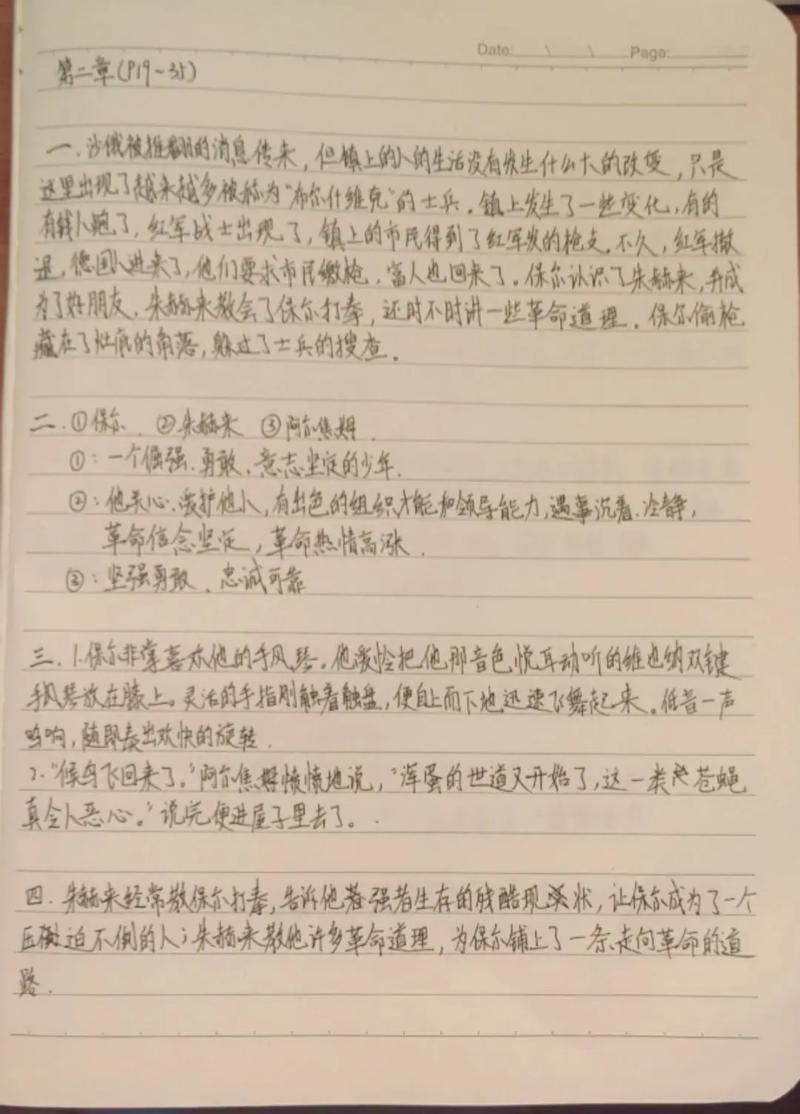 Date: \ \ Page:
第二章(P19~35)
一.沙俄被推翻的消息传来，但镇上的人的生活没有发生什么大的改变，只是
这里出现了越来越多被称为“布尔什维克”的士兵。镇上发生了一些变化，有的
有钱人跑了，红军战士出现了，镇上的市民得到了红军发的枪支。不久，红军撤
退，德国人进来了，他们要求市民缴枪，富人也回来了。保尔认识了朱赫来，并成
为了好朋友．朱赫来教会了保尔打拳，还时不时讲一些革命道理．保尔偷枪
藏在了灶底的角落，躲过了士兵的搜查。
二.①保尔．②朱赫来 ③阿尔焦姆．
①：一个倔强．勇敢、意志坚定的少年．
②：他关心．爱护他人，有出色的组织才能和领导能力，遇事沉着．冷静，
革命信念坚定，革命热情高涨．
③：坚强勇敢、忠诚可靠
三.1.保尔非常喜欢他的手风琴。他爱怜把他那音色悦耳动听的维也纳双键
手风琴放在膝上。灵活的手指刚触着触盘，便自上而下地迅速飞舞起来。低音一声
鸣响，随即奏出欢快的旋转．
2.“候鸟飞回来了。”阿尔焦姆愤愤地说，“浑蛋的世道又开始了，这一类苍蝇
真令人恶心。”说完便进屋子里去了。
四.朱赫来经常教保尔打拳，告诉他着强者生存的残酷现状，让保尔成为了一个
压迫不倒的人；朱赫来教他许多革命道理，为保尔铺上了一条走向革命的道
路．